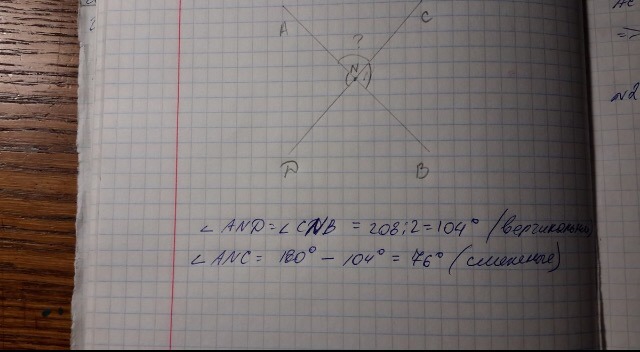 A
C
?
N
D
B
∠AND=∠CNB = 208:2=104° (вертикальные)
∠ANC = 180° – 104° = 76° (смежные)
N2